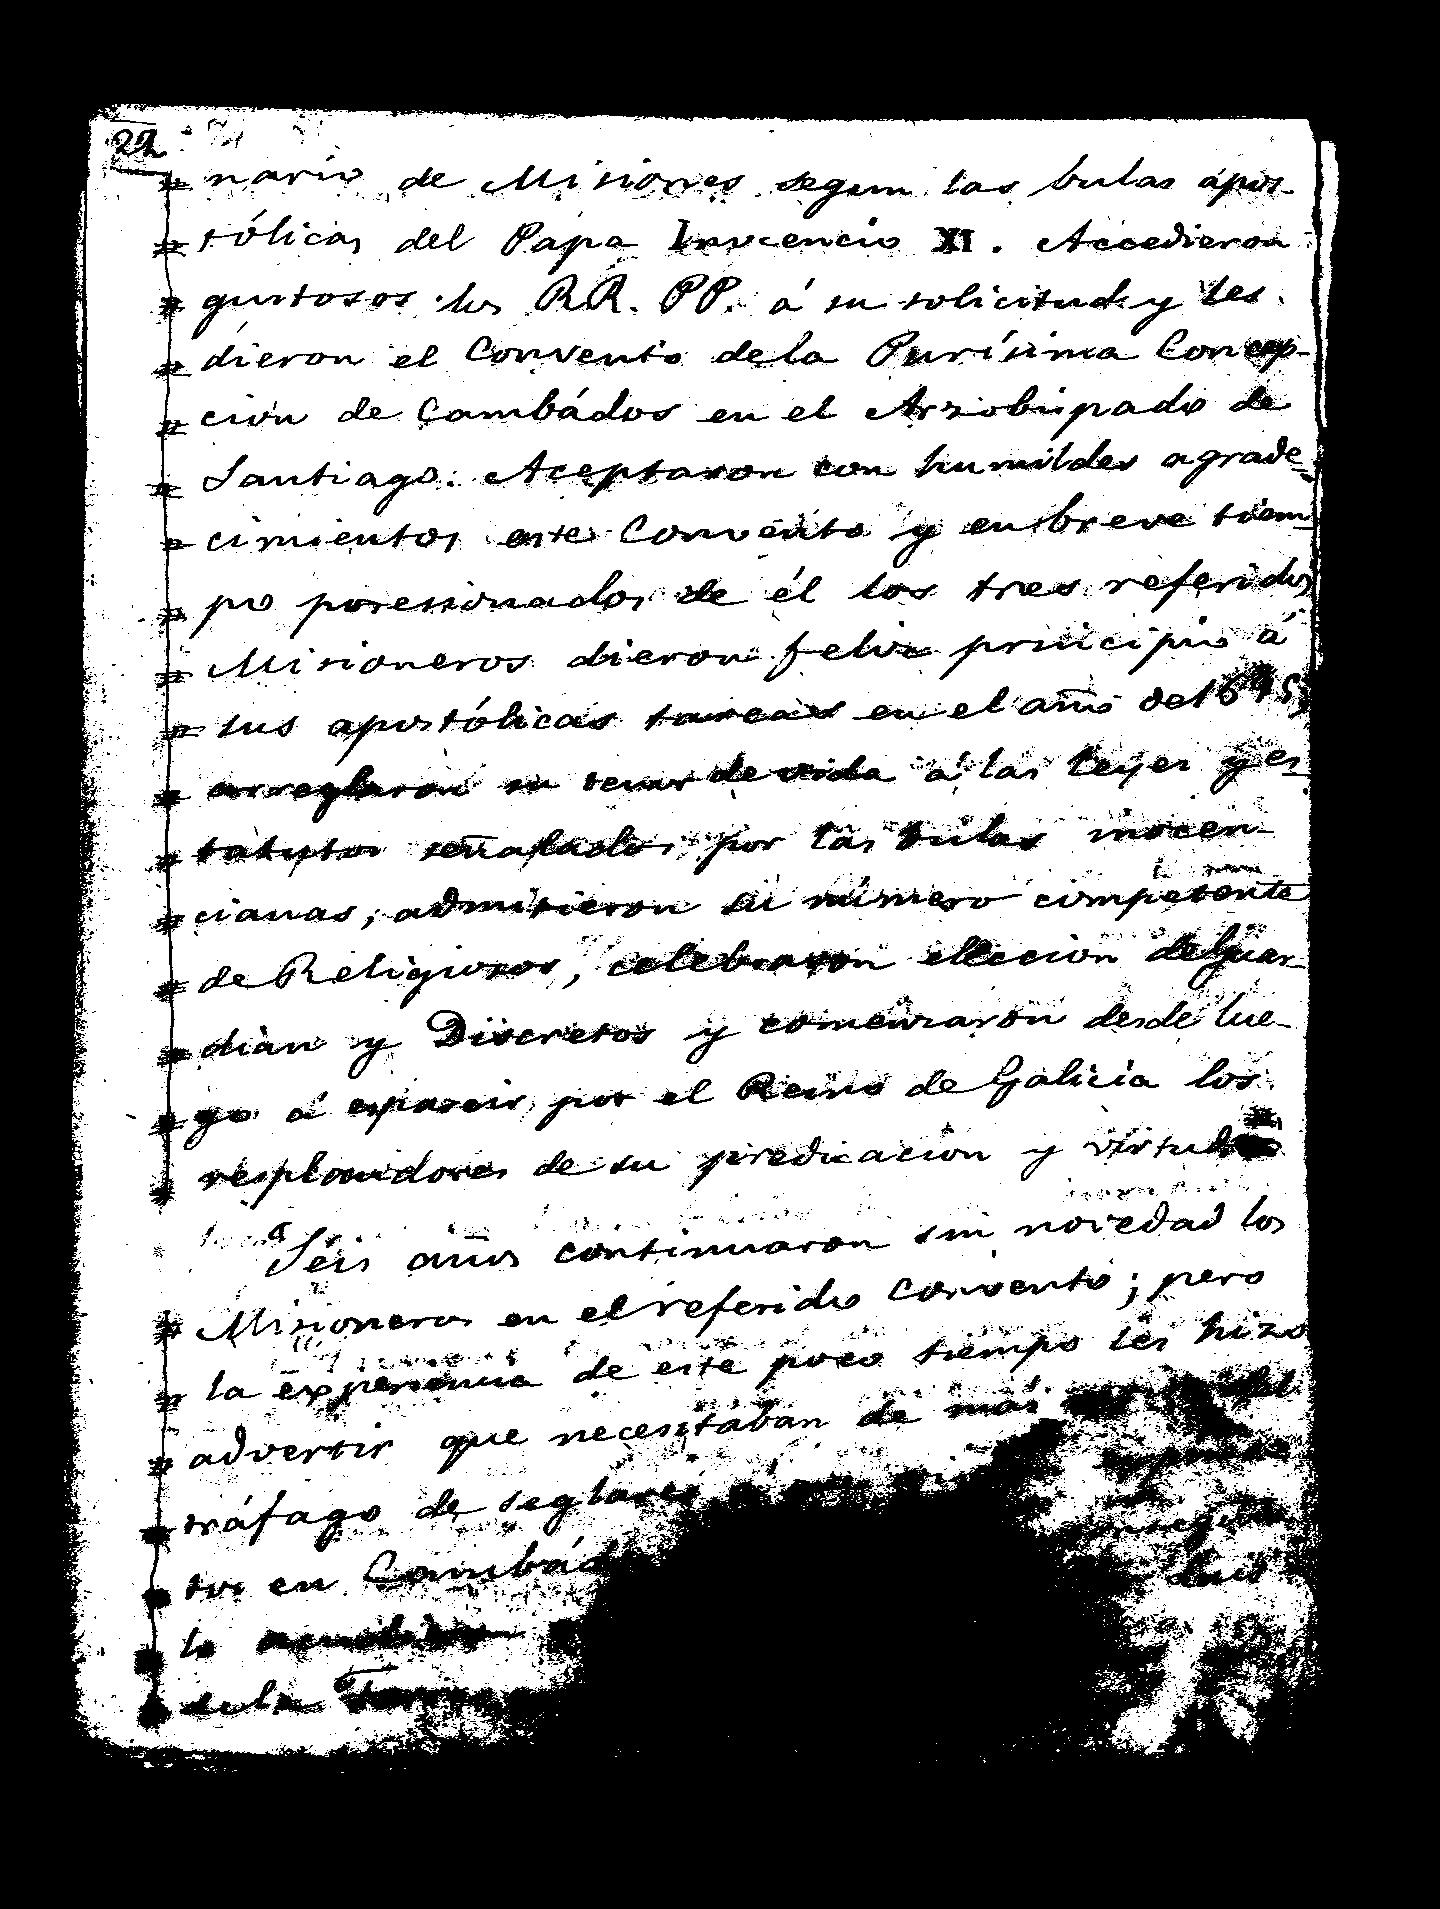 22
nario de Misiones segun las bulas apos-
tólicas del Papa Inocencio XI. Accedieron
gustosos los RR. PP. á su solicitud y les
dieron el Convento de la Purísima Concep-
cion de Cambádos en el Arzobispado de
Santiago. Aceptaron con humildes agrade-
cimientos este Convento y en breve tiem-
po posesionados de él los tres referidos
Misioneros dieron felix principio á
sus apostólicas tareas en el año de 1695,
arreglaron su tenor de vida á las leyes y es-
tatutos señalados por las bulas inocen-
cianas; admitieron el número competente
de Religiosos, celebraron eleccion de Guar-
dian y Discretos y comenzaron desde lue-
go á esparcir por el Reino de Galicia los
resplandores de su predicacion y virtudes
Seis años continuaron sin novedad los
Misioneros en el referido Convento; pero
la experiencia de este poco tiempo les hizo
advertir que necesitaban de más del
tráfago de seglares
tos en
lo
de la